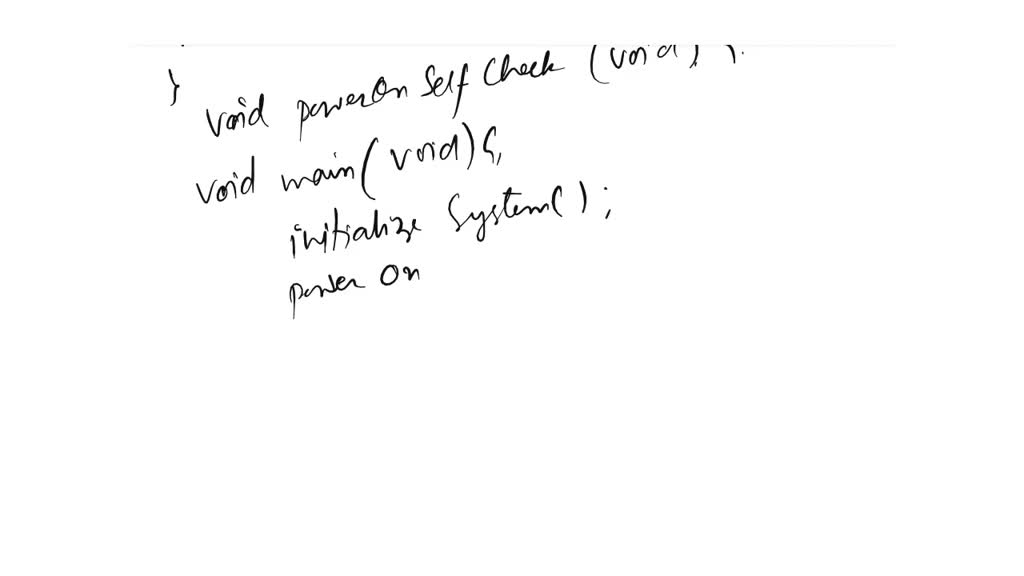 }
void powerOn Self Check (void)
void main(void){
initialize System( );
power On